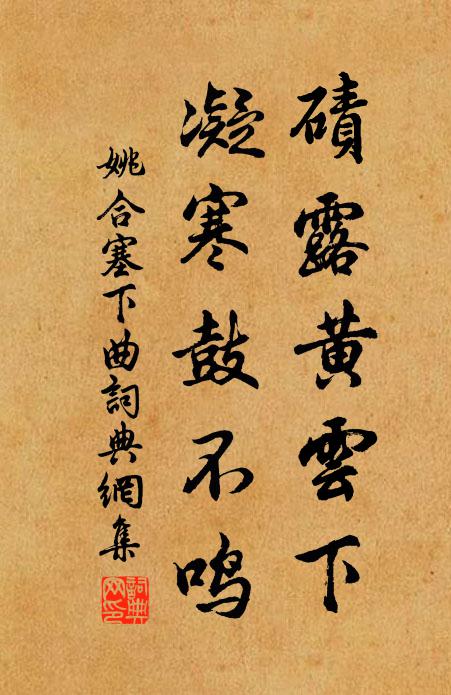 磧露黃雲下
凝寒鼓不鳴
姚合塞下曲詞典網集
詞典網印